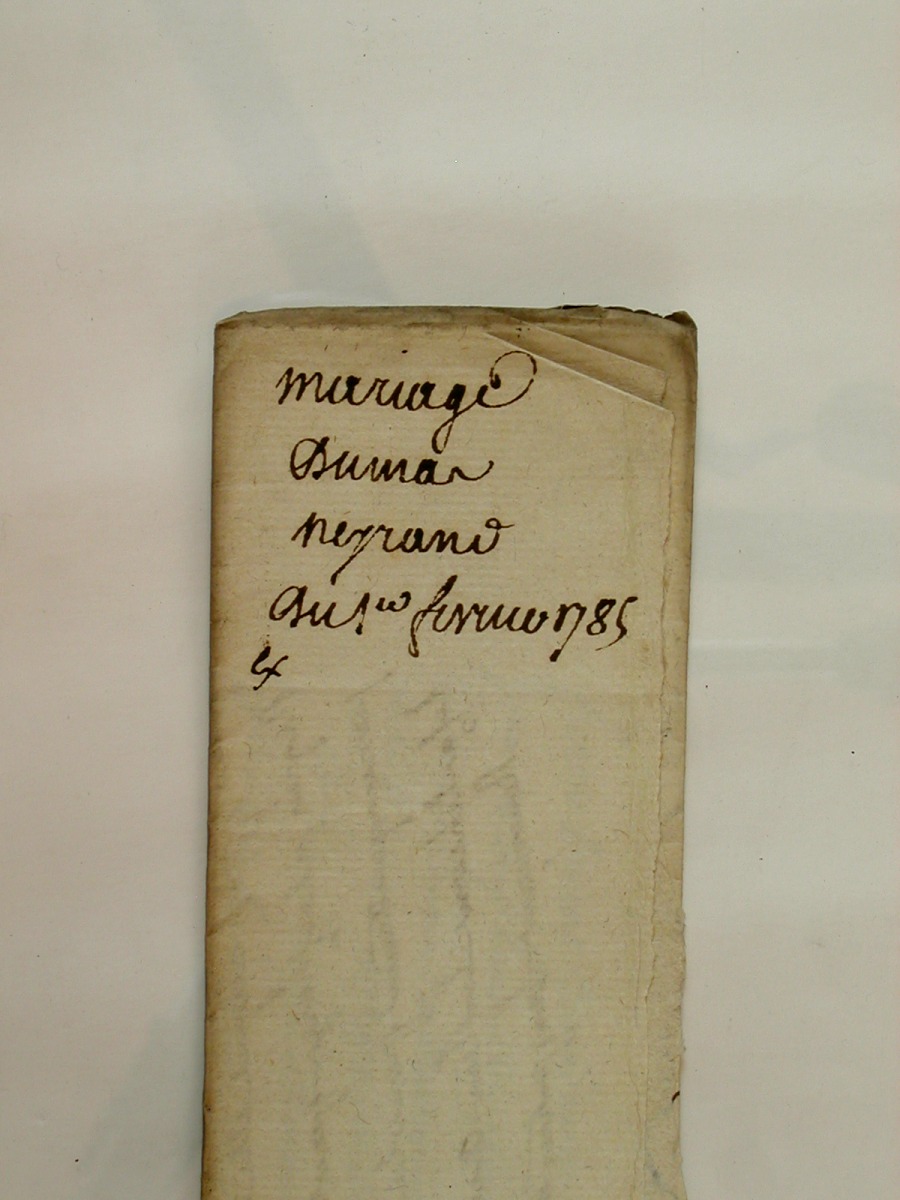 mariage
Dumas
neyrand
Du 1er fevrier 1785